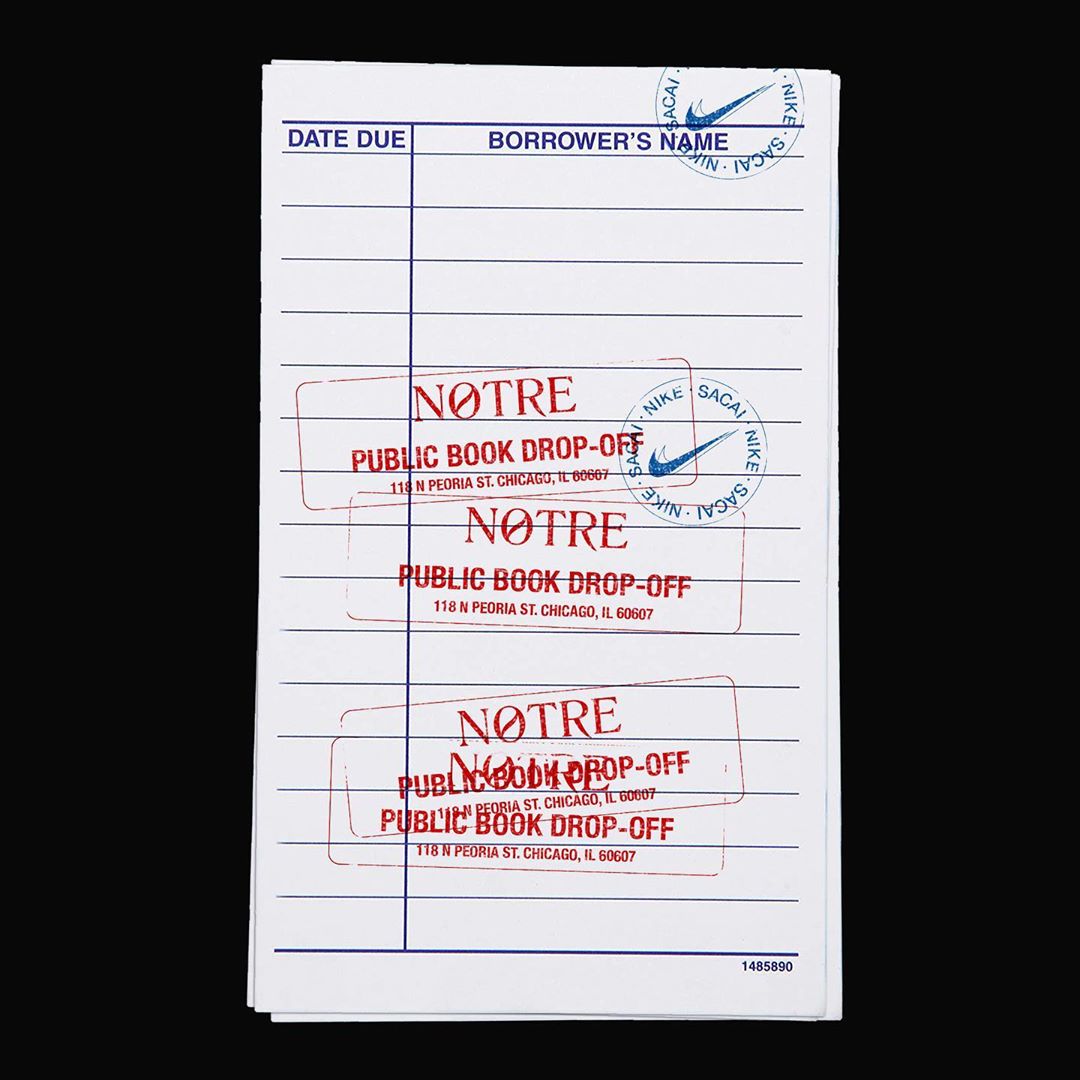 DATE DUE
BORROWER'S NAME
SACAI · NIKE · SACAI · NIKE ·
NØTRE
PUBLIC BOOK DROP-OFF
118 N PEORIA ST. CHICAGO, IL 60607
NIKE · SACAI · NIKE · SACAI · NIKE · SACAI ·
NØTRE
PUBLIC BOOK DROP-OFF
118 N PEORIA ST. CHICAGO, IL 60607
NØTRE
PUBLIC BOOK DROP-OFF
118 N PEORIA ST. CHICAGO, IL 60607
NØTRE
PUBLIC BOOK DROP-OFF
118 N PEORIA ST. CHICAGO, IL 60607
1485890